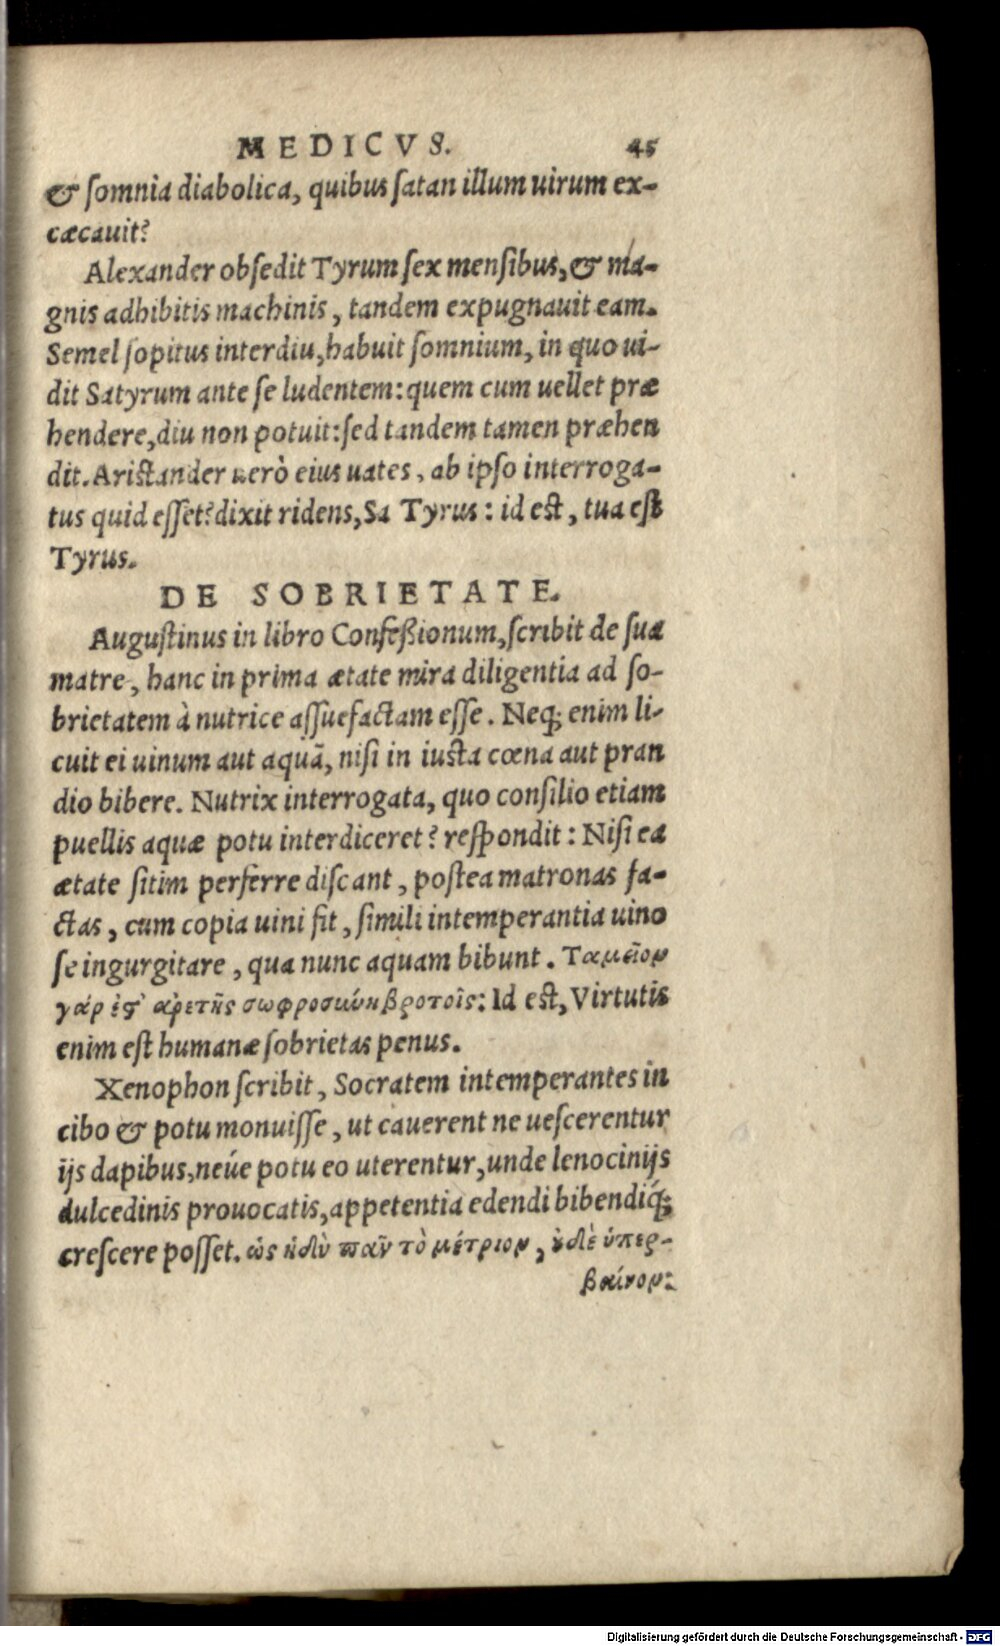 MEDICVS. 45
& somnia diabolica, quibus satan illum uirum ex-
cæcauit?
Alexander obsedit Tyrum sex mensibus, & ma-
gnis adhibitis machinis, tandem expugnauit eam.
Semel sopitus interdiu, habuit somnium, in quo ui-
dit Satyrum ante se ludentem: quem cum uellet præ
hendere, diu non potuit: sed tandem tamen præhen
dit. Aristander uerò eius uates, ab ipso interroga-
tus quid esset? dixit ridens, Sa Tyrus: id est, tua est
Tyrus.
DE SOBRIETATE.
Augustinus in libro Confeßionum, scribit de sua
matre, hanc in prima ætate mira diligentia ad so-
brietatem à nutrice assuefactam esse. Neq; enim li-
cuit ei uinum aut aquã, nisi in iusta cœna aut pran
dio bibere. Nutrix interrogata, quo consilio etiam
puellis aquæ potu interdiceret? respondit: Nisi ea
ætate sitim perferre discant, postea matronas fa-
ctas, cum copia uini fit, simili intemperantia uino
se ingurgitare, qua nunc aquam bibunt. Ταμεῖον
γάρ ἐϛ' ἀρετῆς σωφροσύνη βροτοῖς: Id est, Virtutis
enim est humanæ sobrietas penus.
Xenophon scribit, Socratem intemperantes in
cibo & potu monuisse, ut cauerent ne uescerentur
ijs dapibus, néue potu eo uterentur, unde lenocinijs
dulcedinis prouocatis, appetentia edendi bibendiq́;
crescere posset. ὡς ἡδὺ πᾶν τὸ μέτριον, ȣδὲ ὑπερ-
βαίνον:
Digitalisierung gefördert durch die Deutsche Forschungsgemeinschaft - DFG